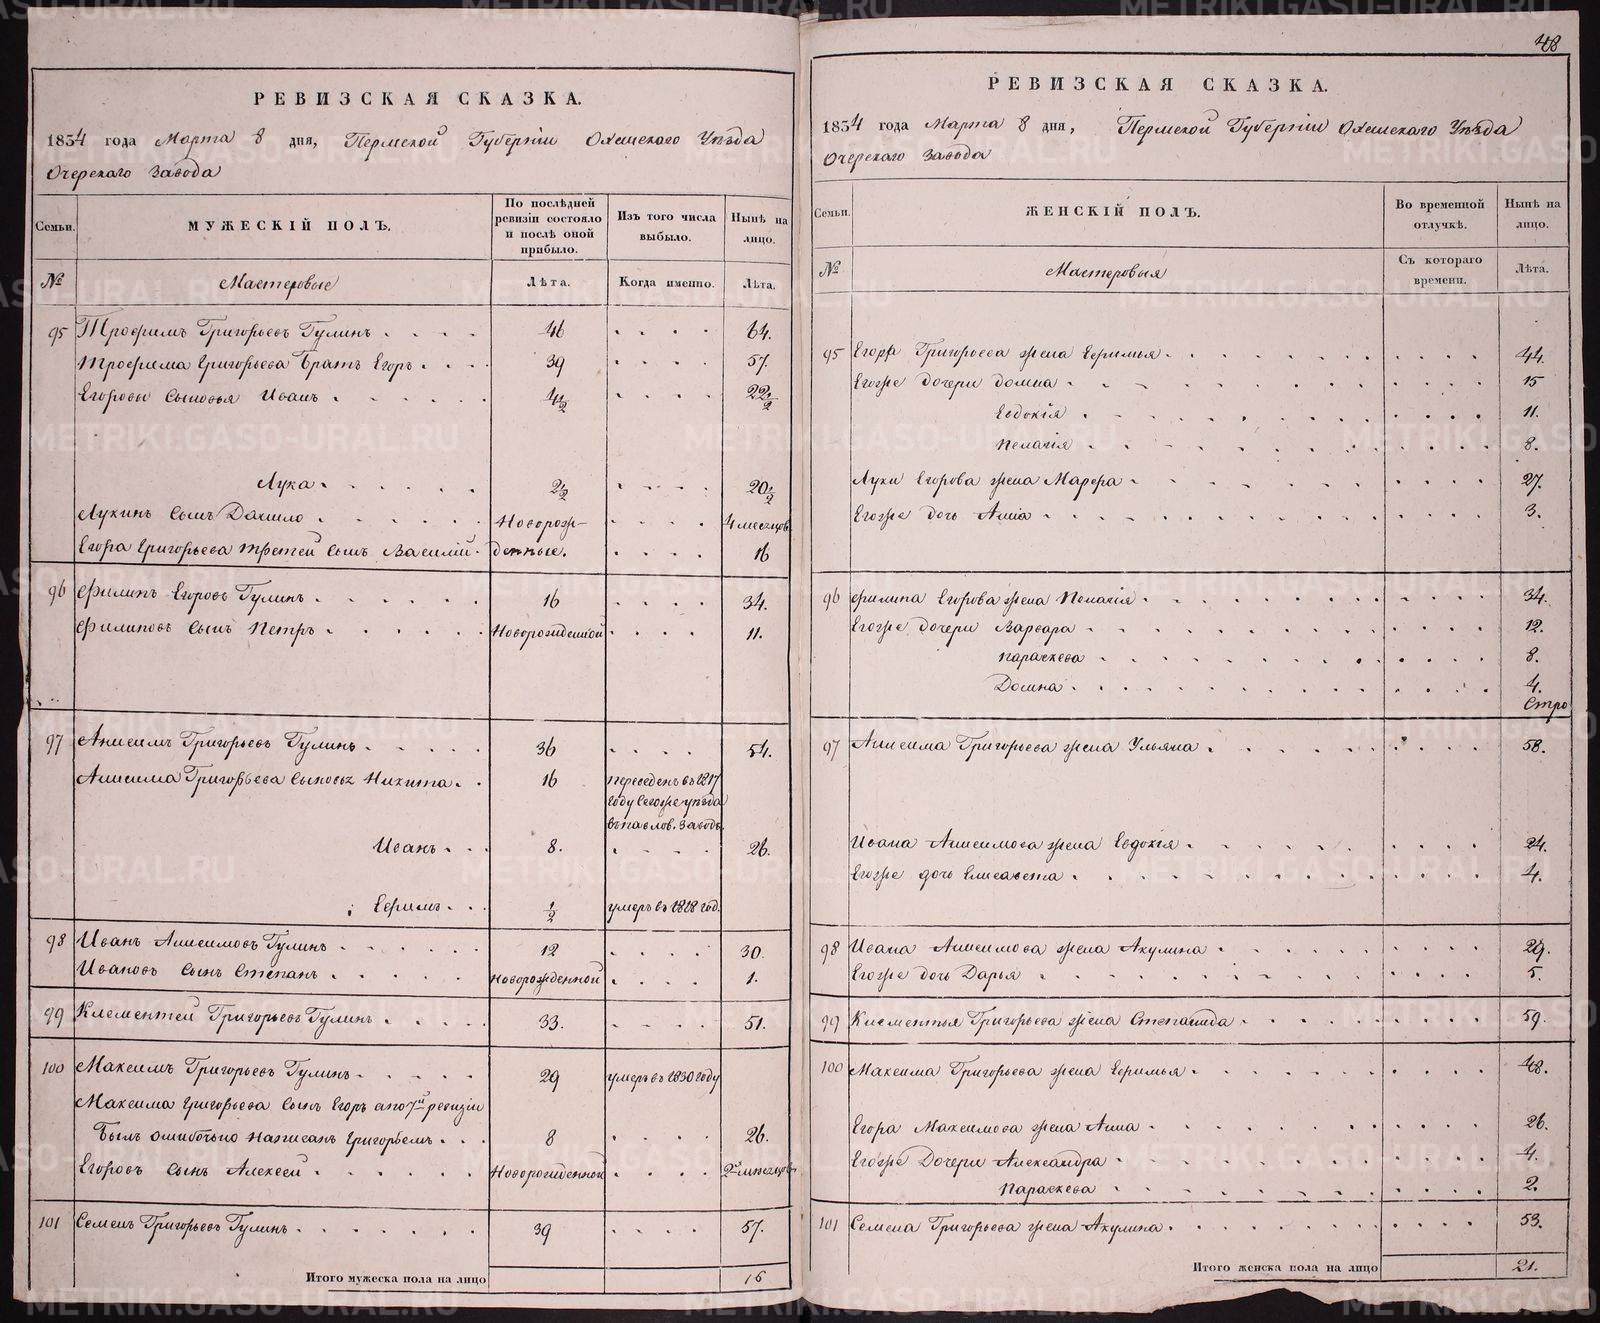 РЕВИЗСКАЯ СКАЗКА.
1834 года Марта 8 дня, Пермской Губерніи Оханскаго Уѣзда
Очерскаго Завода
Семьи. МУЖЕСКІЙ ПОЛЪ. По послѣдней ревизіи состояло и послѣ оной прибыло. Изъ того числа выбыло. Нынѣ на лицо.
№ Мастеровые Лѣта. Когда именно. Лѣта.
95 Трофимъ Григорьевъ Гулинъ 46 64.
Трофима Григорьева братъ Егоръ 39 57.
Егоровы сыновья Иванъ 4½ 22½
Лука 2½ 20½
Лукинъ сынъ Данило Новорож- 4 месяцов.
Егора Григорьева третей сынъ Василій денные. 16
96 Филипъ Егоровъ Гулинъ 16 34.
Филиповъ сынъ Петръ Новорожденной 11.
97 Анисимъ Григорьевъ Гулинъ 36 54.
Анисима Григорьева сыновья Никита 16 переведенъ в 1817
году сегоже уѣзда
въ павлов. заводъ.
Иванъ 8. 26.
Ефимъ ½ умеръ въ 1818 год.
98 Иванъ Анисимовъ Гулинъ 12 30.
Ивановъ сынъ Степанъ Новорожденной 1.
99 Клементей Григорьевъ Гулинъ 33. 51.
100 Максимъ Григорьевъ Гулинъ 29 умеръ въ 1830 году
Максима Григорьева сынъ Егоръ а по 7й ревизіи
былъ ошибочно написанъ Григорьемъ 8 26.
Егоровъ сынъ Алексей Новорожденной 2хъ месяцов.
101 Семенъ Григорьевъ Гулинъ 39 57.
Итого мужеска пола на лицо 16
48
РЕВИЗСКАЯ СКАЗКА.
1834 года Марта 8 дня, Пермской Губерніи Оханскаго Уѣзда
Очерскаго Завода
Семьи. ЖЕНСКІЙ ПОЛЪ. Во временной отлучкѣ. Нынѣ на лицо.
№ Мастеровыя Съ котораго времени. Лѣта.
95 Егора Григорьева жена Ефимья 44.
Егоже дочери Домна 15
Евдокія 11.
Пелагія 8.
Луки Егорова жена Марфа 27.
Егоже дочь Анна 3.
96 Филипа Егорова жена Пелагія 34.
Егоже дочери Варвара 12.
Параскева 8.
Домна 4.
Стро
97 Анисима Григорьева жена Ульяна 58.
Ивана Анисимова жена Евдокія 24.
Егоже дочь Елисавета 4.
98 Ивана Анисимова жена Акулина 29.
Егоже дочь Дарья 5.
99 Клементья Григорьева жена Степанида 59.
100 Максима Григорьева жена Ефимья 48.
Егора Максимова жена Анна 26.
Егоже Дочери Александра 4.
Параскева 2.
101 Семена Григорьева жена Акулина 53.
Итого женска пола на лицо 21.
METRIKI.GASO-URAL.RU